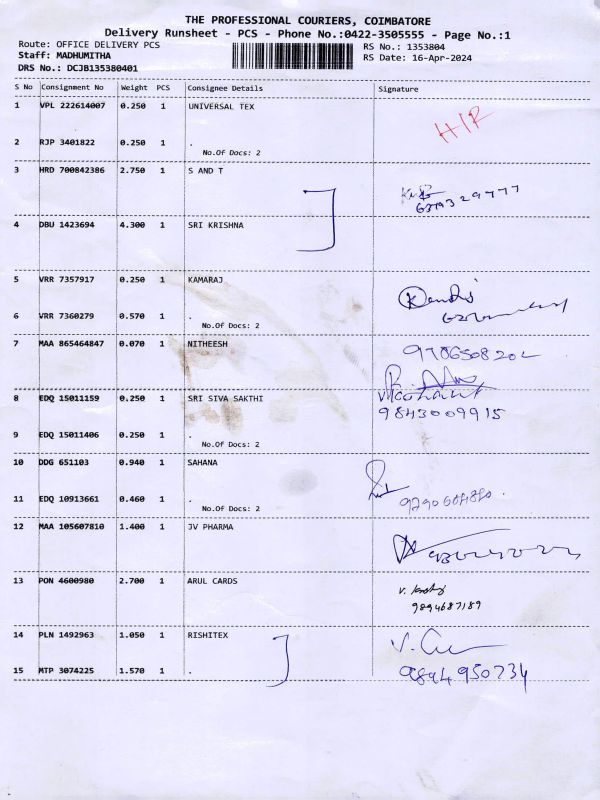 THE PROFESSIONAL COURIERS, COIMBATORE
Delivery Runsheet - PCS - Phone No.:0422-3505555 - Page No.:1
Route: OFFICE DELIVERY PCS
RS No.: 1353804
Staff: MADHUMITHA
RS Date: 16-Apr-2024
DRS No.: DCJB135380401
S No Consignment No Weight PCS Consignee Details Signature
1 VPL 222614007 0.250 1 UNIVERSAL TEX
H/R
2 RJP 3401822 0.250 1 .
No.Of Docs: 2
3 HRD 700842386 2.750 1 S AND T
6379329777
4 DBU 1423694 4.300 1 SRI KRISHNA
5 VRR 7357917 0.250 1 KAMARAJ
6 VRR 7360279 0.570 1 .
No.Of Docs: 2
7 MAA 865464847 0.070 1 NITHEESH
8 EDQ 15011159 0.250 1 SRI SIVA SAKTHI
9843009915
9 EDQ 15011406 0.250 1 .
No.Of Docs: 2
10 DDG 651103 0.940 1 SAHANA
11 EDQ 10913661 0.460 1 .
No.Of Docs: 2
12 MAA 105607810 1.400 1 JV PHARMA
13 PON 4600980 2.700 1 ARUL CARDS
9894687189
14 PLN 1492963 1.050 1 RISHITEX
15 MTP 3074225 1.570 1 .
9894950734